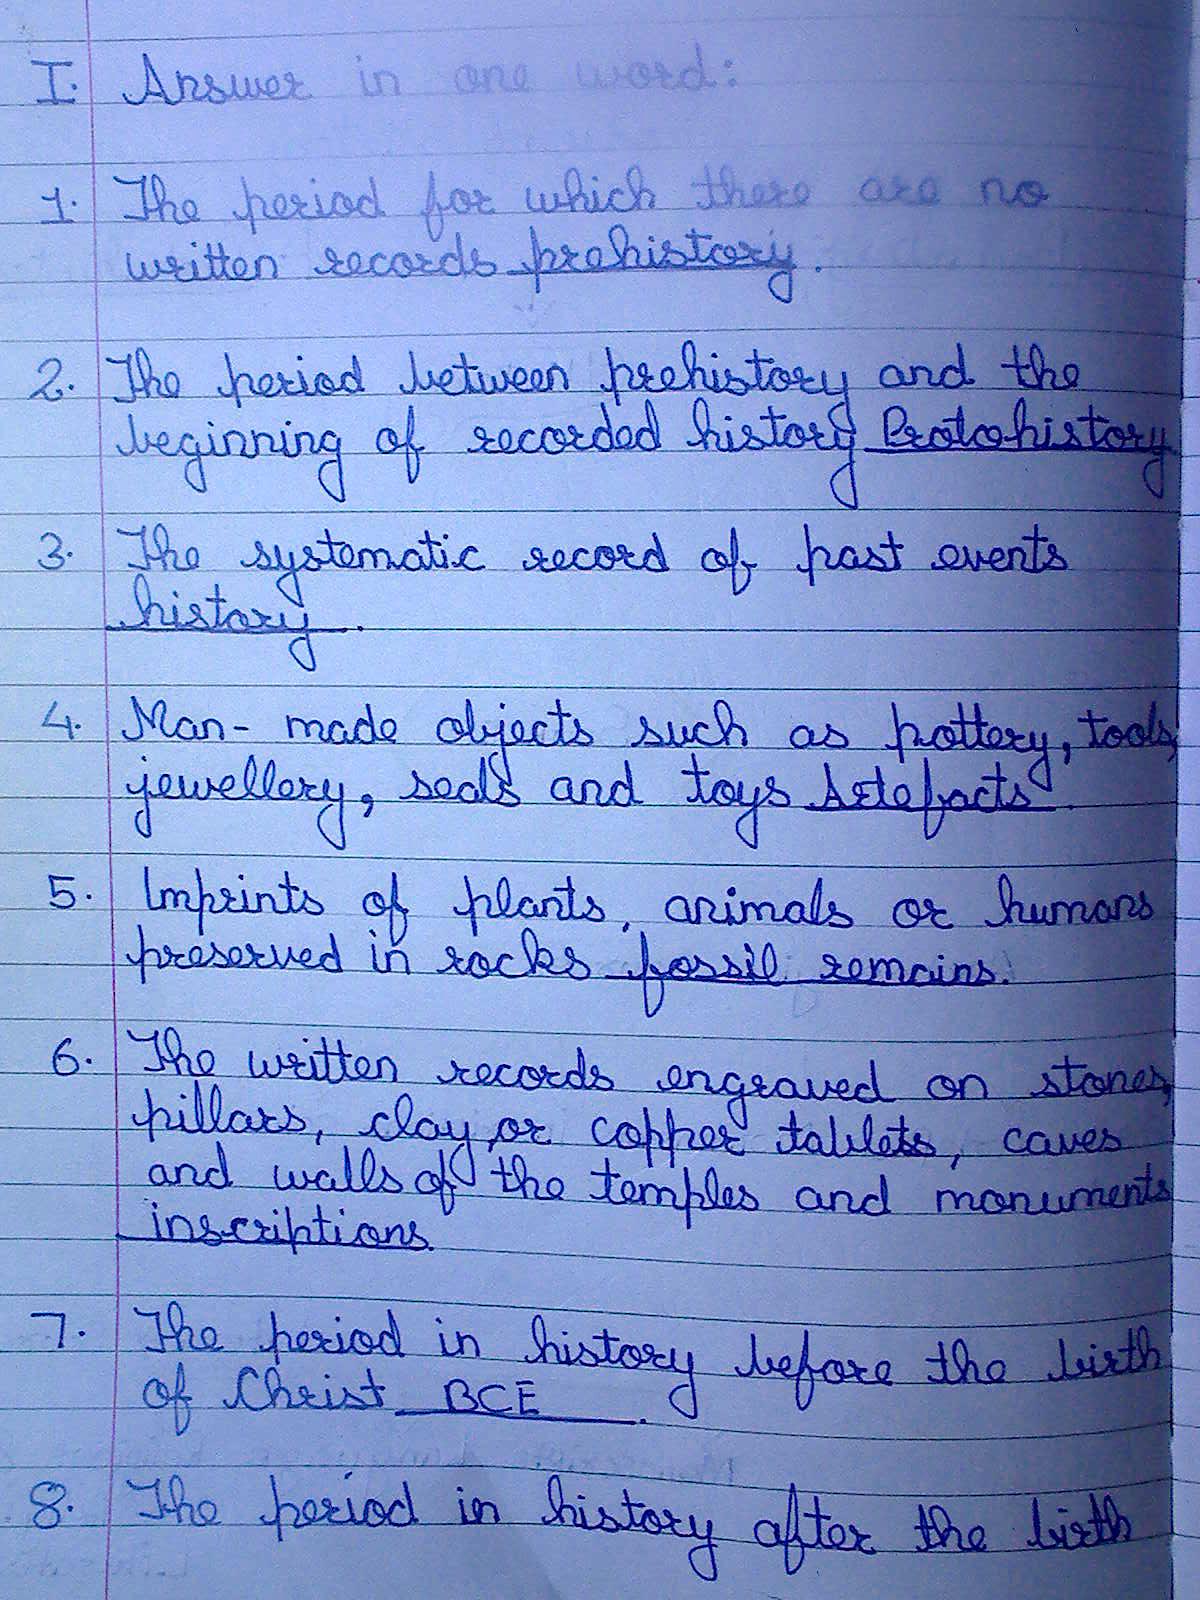 I. Answer in one word:
1. The period for which there are no
written records prehistory.
2. The period between prehistory and the
beginning of recorded history Protohistory
3. The systematic record of past events
history.
4. Man-made objects such as pottery, tools,
jewellery, seals and toys Artefacts.
5. Imprints of plants, animals or humans
preserved in rocks fossil remains.
6. The written records engraved on stones,
pillars, clay, or copper tablets, caves
and walls of the temples and monuments
inscriptions.
7. The period in history before the birth
of Christ BCE.
8. The period in history after the birth